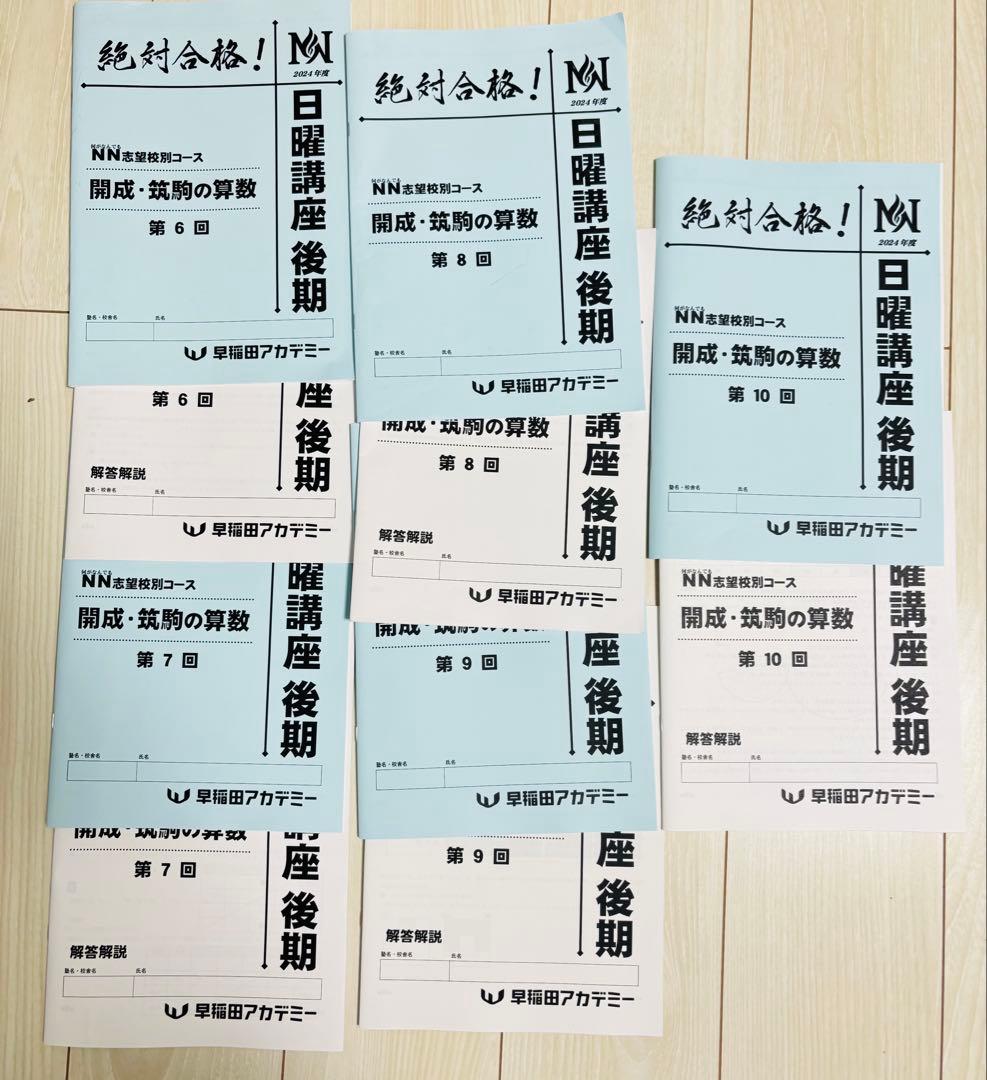 絶対合格!
NN
2024年度
日曜講座 後期
何がなんでも
NN志望校別コース
開成・筑駒の算数
第 6 回
塾名・校舎名
氏名
早稲田アカデミー
第 6 回
座 後期
解答解説
塾名・校舎名
氏名
早稲田アカデミー
何がなんでも
NN志望校別コース
開成・筑駒の算数
第 7 回
曜講座 後期
塾名・校舎名
氏名
早稲田アカデミー
開成・筑駒の算数
第 7 回
講座 後期
解答解説
塾名・校舎名
氏名
早稲田アカデミー
絶対合格!
NN
2024年度
日曜講座 後期
何がなんでも
NN志望校別コース
開成・筑駒の算数
第 8 回
塾名・校舎名
氏名
早稲田アカデミー
開成・筑駒の算数
第 8 回
講座 後期
解答解説
塾名・校舎名
氏名
早稲田アカデミー
開成・筑駒の算数
第 9 回
座 後期
塾名・校舎名
氏名
早稲田アカデミー
第 9 回
座 後期
解答解説
塾名・校舎名
氏名
早稲田アカデミー
絶対合格!
NN
2024年度
日曜講座 後期
何がなんでも
NN志望校別コース
開成・筑駒の算数
第 10 回
塾名・校舎名
氏名
早稲田アカデミー
何がなんでも
NN志望校別コース
開成・筑駒の算数
第 10 回
曜講座 後期
解答解説
塾名・校舎名
氏名
早稲田アカデミー